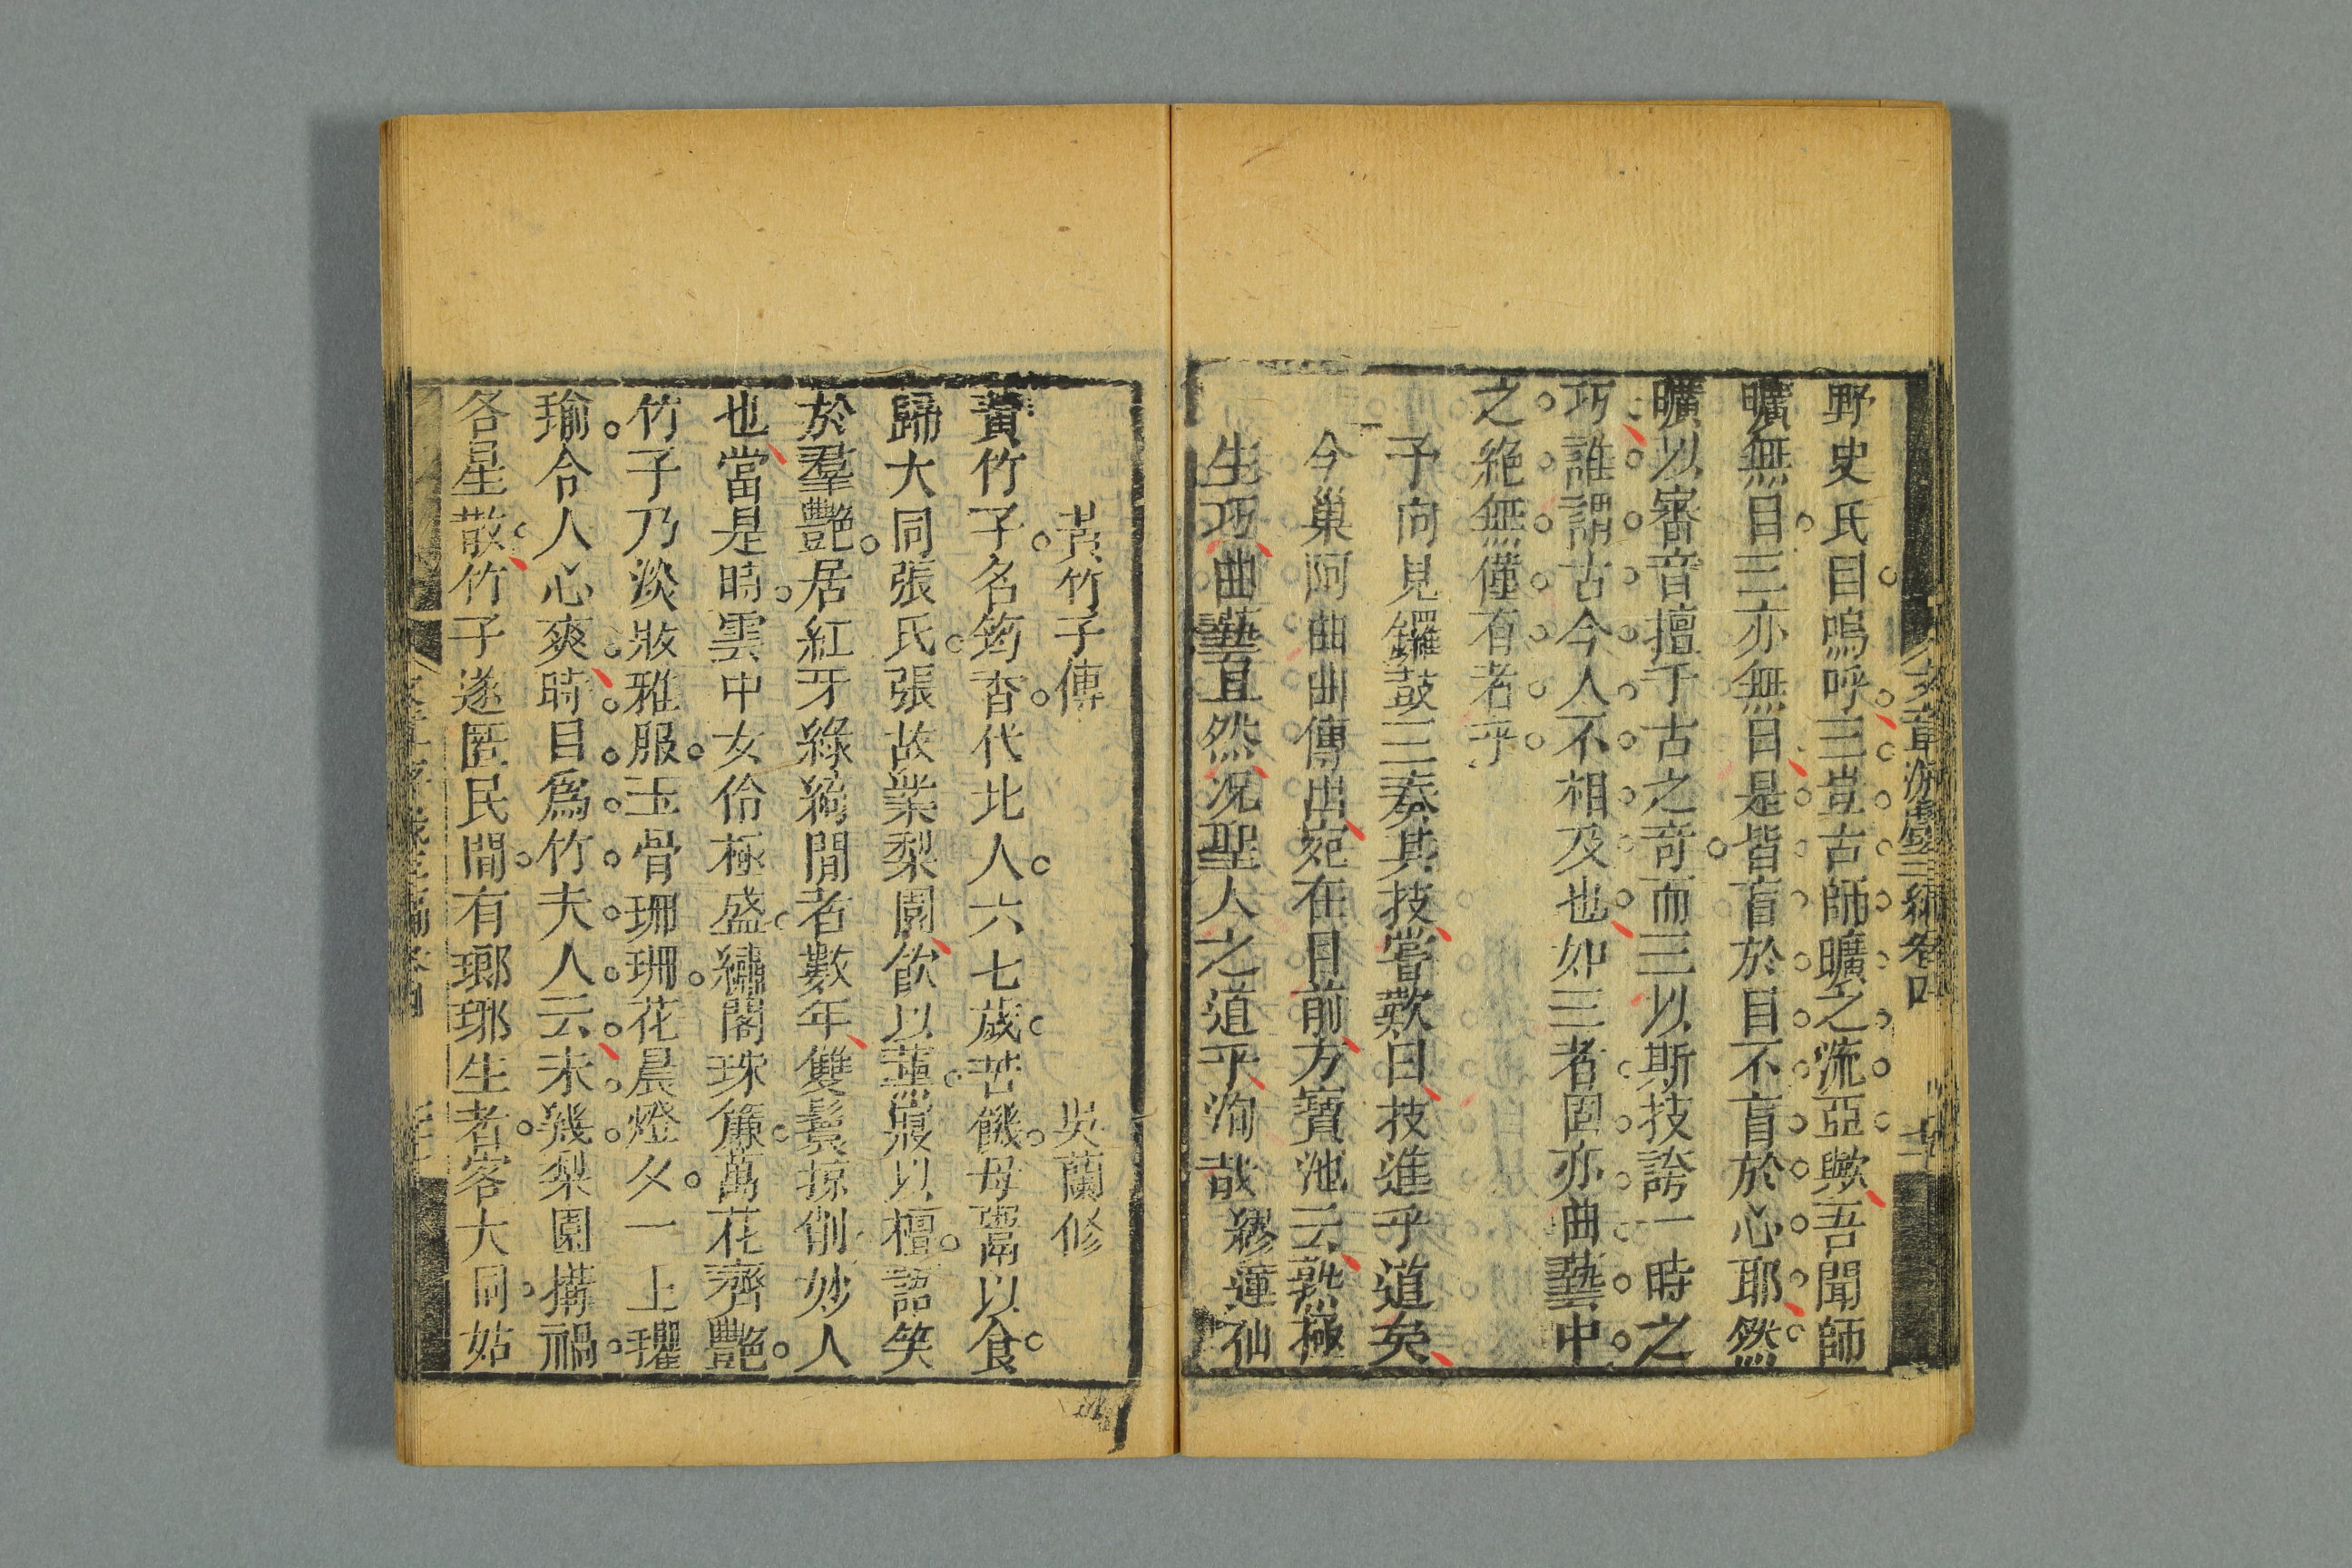 文章游戲三編卷四
野史氏目嗚呼三豈古師曠之流亞歟吾聞師
曠無目三亦無目是皆盲於目不盲於心耶然
曠以審音擅千古之奇而三以斯技誇一時之
巧誰謂古今人不相及也如三者固亦曲藝中
之絶無僅有者乎
予向見鑼鼓三奏其技嘗歎曰技進乎道矣
今巢阿曲曲傳出宛在目前方寶池云熟極
生巧曲藝且然况聖人之道乎洵哉 繆蓮仙
黃竹子傳 吳蘭修
黃竹子名筠香代北人六七歲苦饑母鬻以食
歸大同張氏張故業梨園飲以薰飱以檀語笑
於羣艷居紅牙綠綺間者數年雙鬟掠削妙人
也當是時雲中女伶極盛繡閣珠簾萬花齊艷
竹子乃淡妝雅服玉骨珊珊花晨燈夕一上氍
瑜令人心爽時目爲竹夫人云未幾梨園搆禍
各星散竹子遂匿民間有瑯琊生者客大同姑